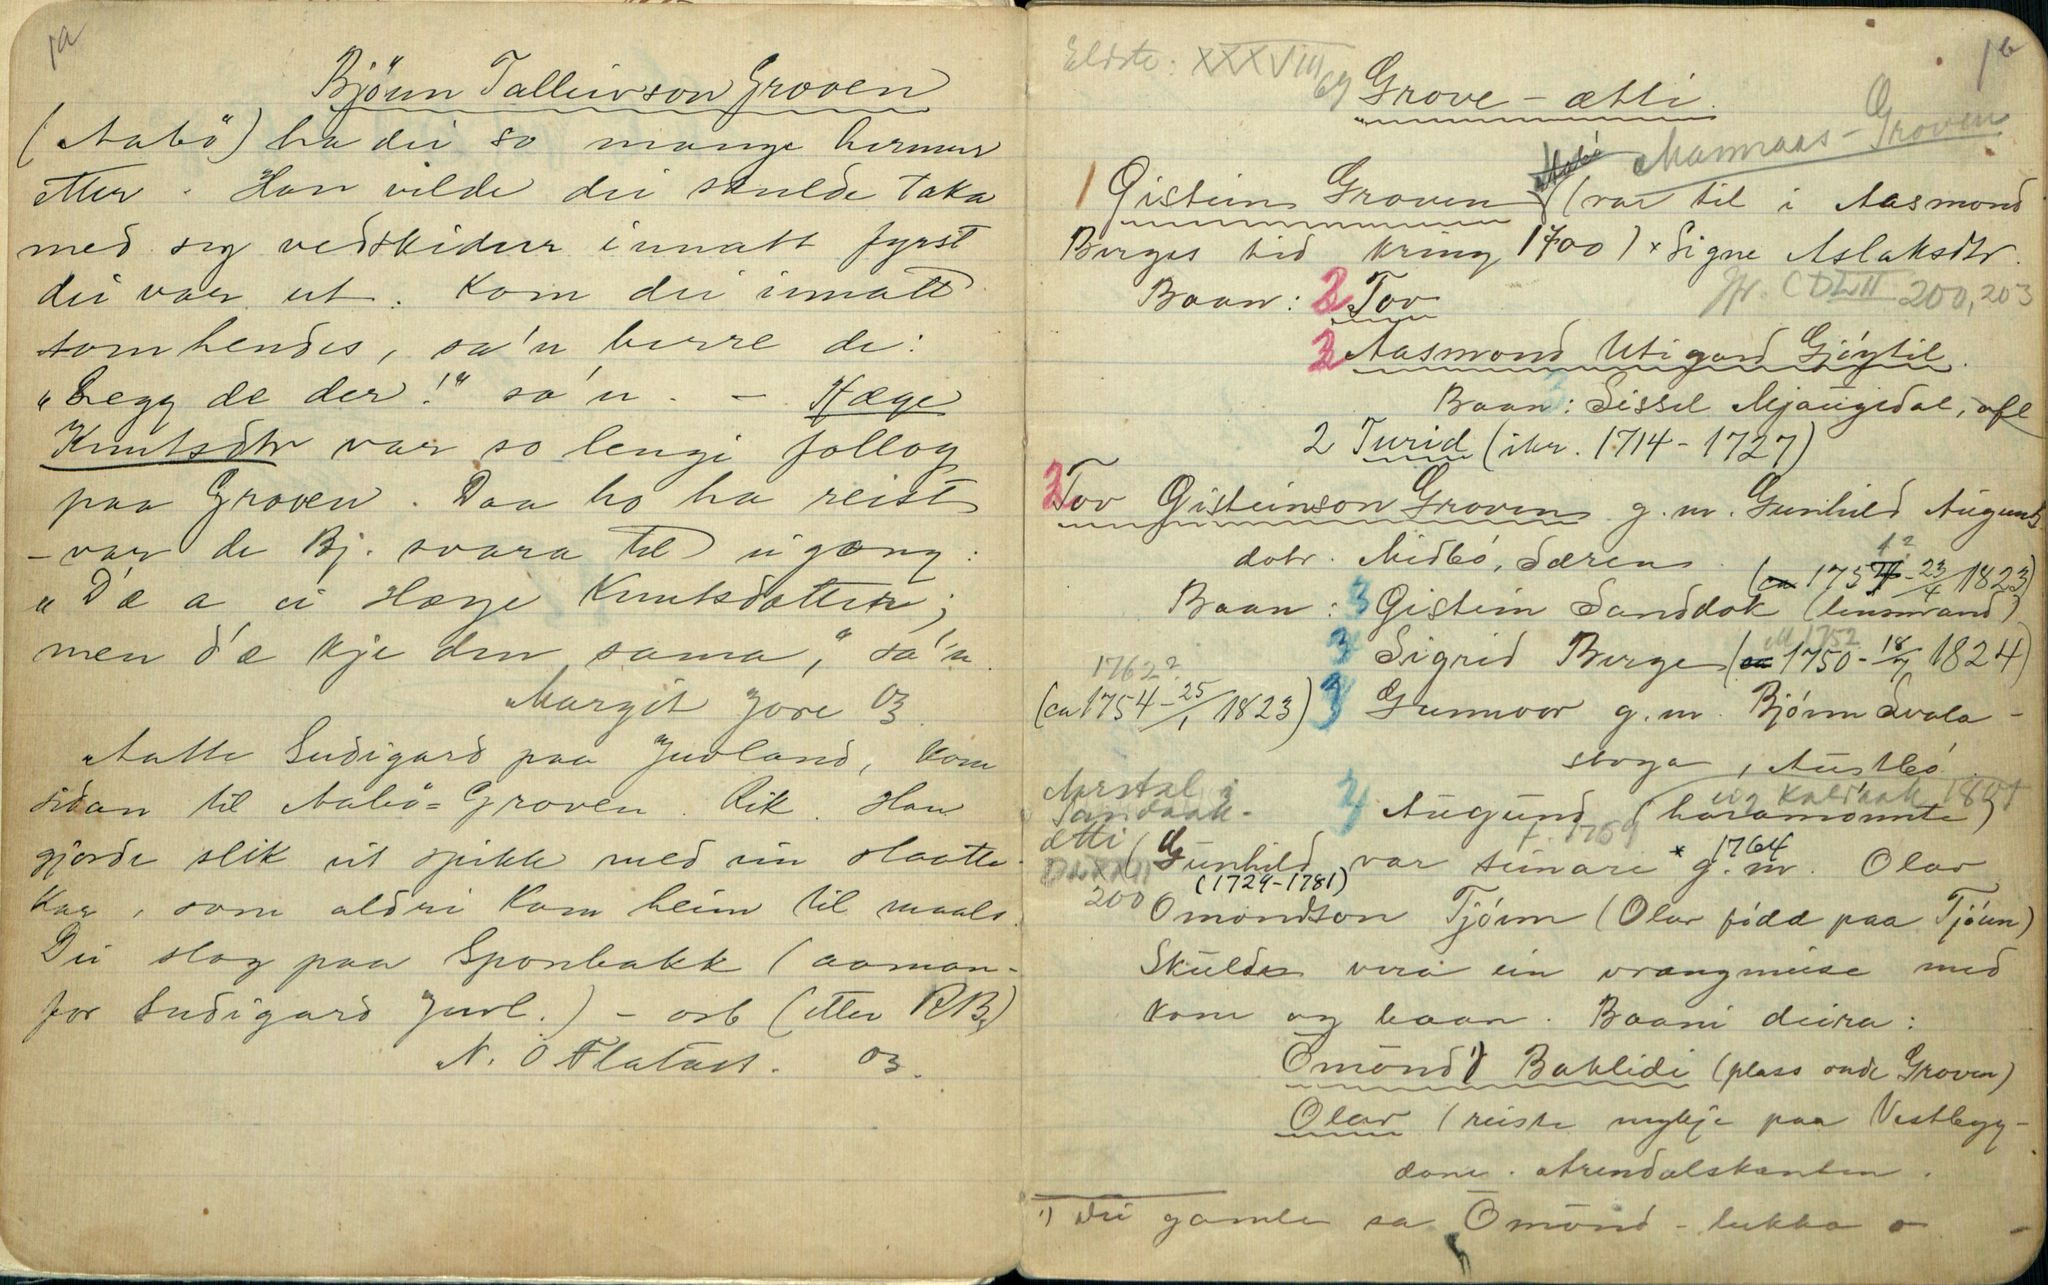 1a
Bjönn Talleivson Groven
(Aabö) ha dei so mange hermur
etter. Han vilde dei skulde taka
med seg vedskidur innatt fyrst
dei var ut. Kom dei innatt
tomhendes, sa'n berre de:
"Legg de der!" sa'n. - Hæge
Knutsdtr var so lengi følløg
paa Groven. Daa ho ha reist
- var de Bj. svara til ei gong:
"D'æ a ei Hæge Knutsdotter;
men d'æ kje den sama," sa'n.
Margit Jore 03.
Aatte Sudigard paa Juvland, kom
sidan til Aabö-Groven. Rik. Han
gjorde slik ut spikk med ein slaatte-
kar, som aldri kom heim til maals.
Dei slog paa Sponbakk (aaman-
for Sudigard Juvl.) - osb (etter RBg)
N. O Flatast. 03.
1b
Eldste: XXXVIII 69
Grove-ætti.
Manraas-Groven
1 Gistein Groven Aabö (var til i Aasmond
Berges tid kring 1700) x Signe Aslaksdtr.
Baan: 2 Tov
Jfr CDLII 200, 203
2 Aasmond Utigard Gjöytil.
Baan: Sissel Mjaugedal, ofl
2 Turid (ikr. 1714-1727)
2 Tov Gisteinson Groven g.m. Gunhild Augunds
dotr. Midbö, Særen.
(ca 1757-23/4 1823)
Baan: 3 Gistein Sanddok (lensmand)
3 Sigrid Berge (ca 1750-18/7 1824)
1752
1762?
(ca 1754-25/1 1823) 3 Gunnvor g.m. Bjönn Svala-
stoga, Austbö.
3 Augund (haramonnte)
og Kaldaak 1801
f. 1759
Aarstal i
Sandaak-
ætti
200
(Gunhild var seinare x g.m. Olav
(1729-1781) 1764
Omondson Tjönn (Olav född paa Tjönn)
Skulde vera ein vrangmeise med
kone og baan. Baani deira:
Omond 1) Baklidi (plass onde Groven)
Olav (reiste mykje paa Vestbygg-
dane. Arendalskanten.
1) Dei gamle sa Omond-lukka o